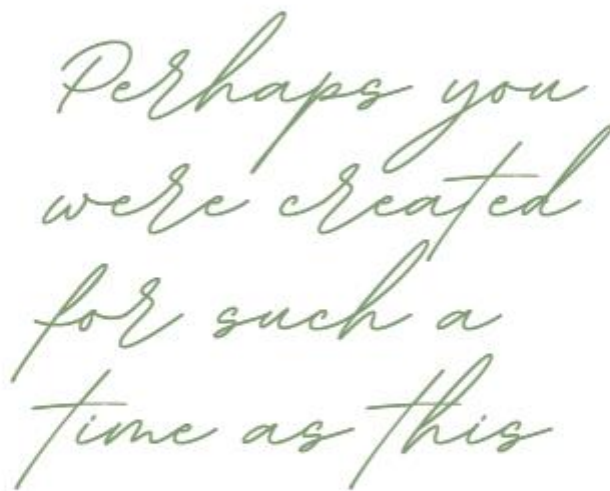 Perhaps you
were created
for such a
time as this